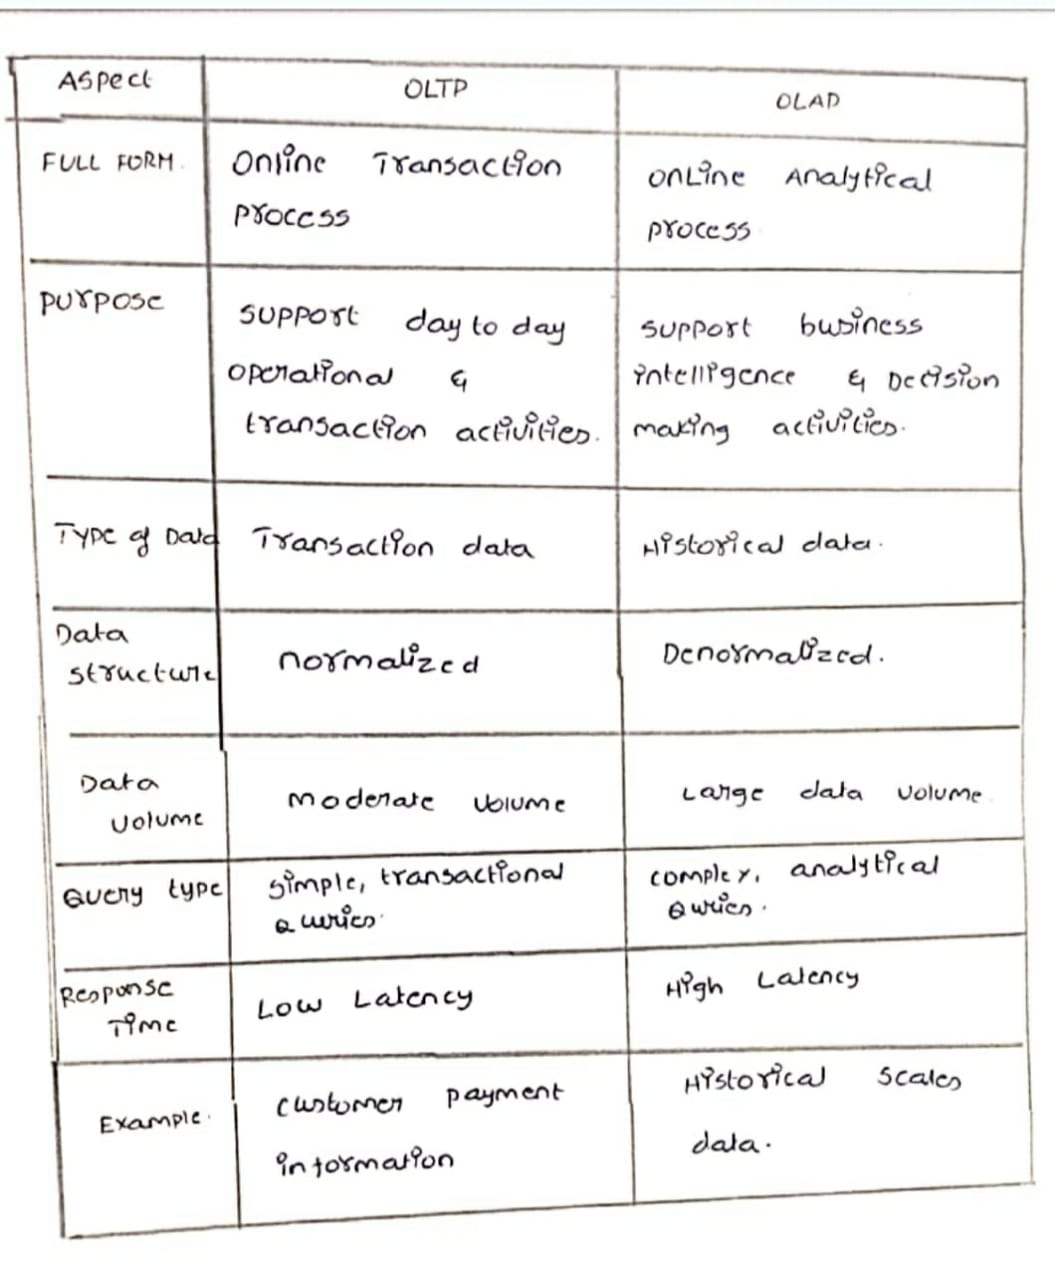 Aspect OLTP OLAP
FULL FORM. Online Transaction process OnLine Analytical process.
Purpose support day to day operational & transaction activities. support business intelligence & Decision making activities.
Type of Data Transaction data Historical data.
Data structure normalized Denormalized.
Data volume moderate volume Large data volume.
Query type simple, transactional Quries. complex, analytical Quries.
Response Time Low Latency High Latency
Example. customer payment information Historical Scales data.